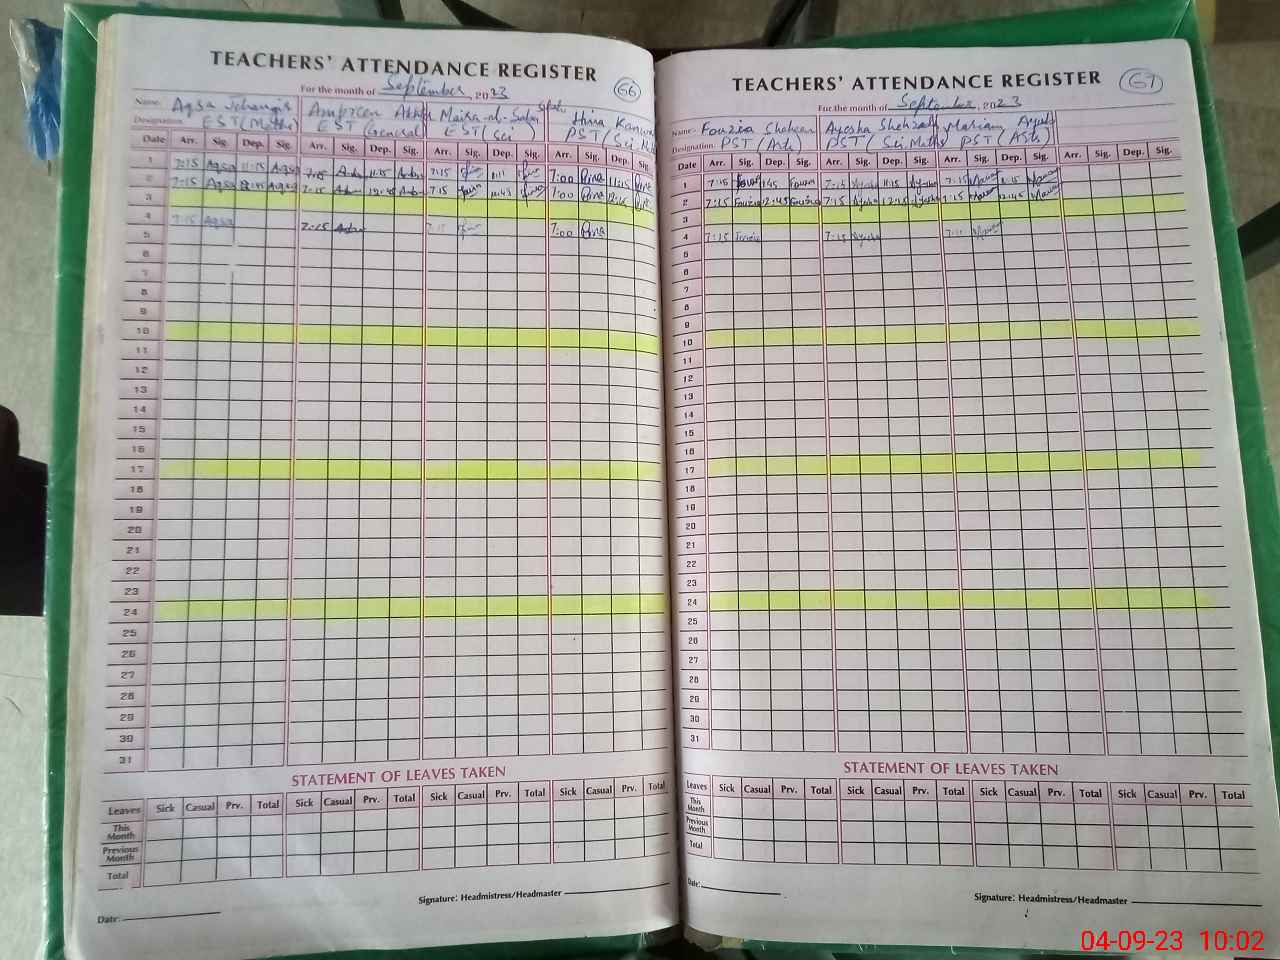 TEACHERS' ATTENDANCE REGISTER
For the month of September, 2023
66
Name: Aqsa Jehangir Ambreen Maira Hina Kanwal
Designation EST (Maths) EST (General) EST (Sci) PST (Sci, Math
Date Arr. Sig. Dep. Sig. Arr. Sig. Dep. Sig. Arr. Sig. Dep. Sig. Arr. Sig. Dep. Sig.
1 7:15 Aqsa 11:15 Aqsa 7:15 11:15 7:15 7:00 11:15
2 7:15 Aqsa 12:45 Aqsa 7:15 12:45 7:15 7:00
3
4 7:15 Aqsa 7:15 7:15 7:00
5
6
7
8
9
10
11
12
13
14
15
16
17
18
19
20
21
22
23
24
25
26
27
28
29
30
31
STATEMENT OF LEAVES TAKEN
Leaves Sick Casual Prv. Total Sick Casual Prv. Total Sick Casual Prv. Total Sick Casual Prv. Total
This Month
Previous Month
Total
Signature: Headmistress/Headmaster
Date:
TEACHERS' ATTENDANCE REGISTER
67
For the month of September, 2023
Name: Fouzia Shaheen Ayesha Shehzadi Mariam Ayub
Designation PST (Arts) PST (Sci, Maths) PST (Arts)
Date Arr. Sig. Dep. Sig. Arr. Sig. Dep. Sig. Arr. Sig. Dep. Sig. Arr. Sig. Dep. Sig.
1 7:15 7:15 11:15 Ayesha 7:15
2 7:15 Fouzia 12:45 Fouzia 7:15 Ayesha 12:45 Ayesha 7:15 12:45
3
4 7:15 Fouzia 7:15 Ayesha
5
6
7
8
9
10
11
12
13
14
15
16
17
18
19
20
21
22
23
24
25
26
27
28
29
30
31
STATEMENT OF LEAVES TAKEN
Leaves Sick Casual Prv. Total Sick Casual Prv. Total Sick Casual Prv. Total Sick Casual Prv. Total
This Month
Previous Month
Total
Date:
Signature: Headmistress/Headmaster
04-09-23 10:02